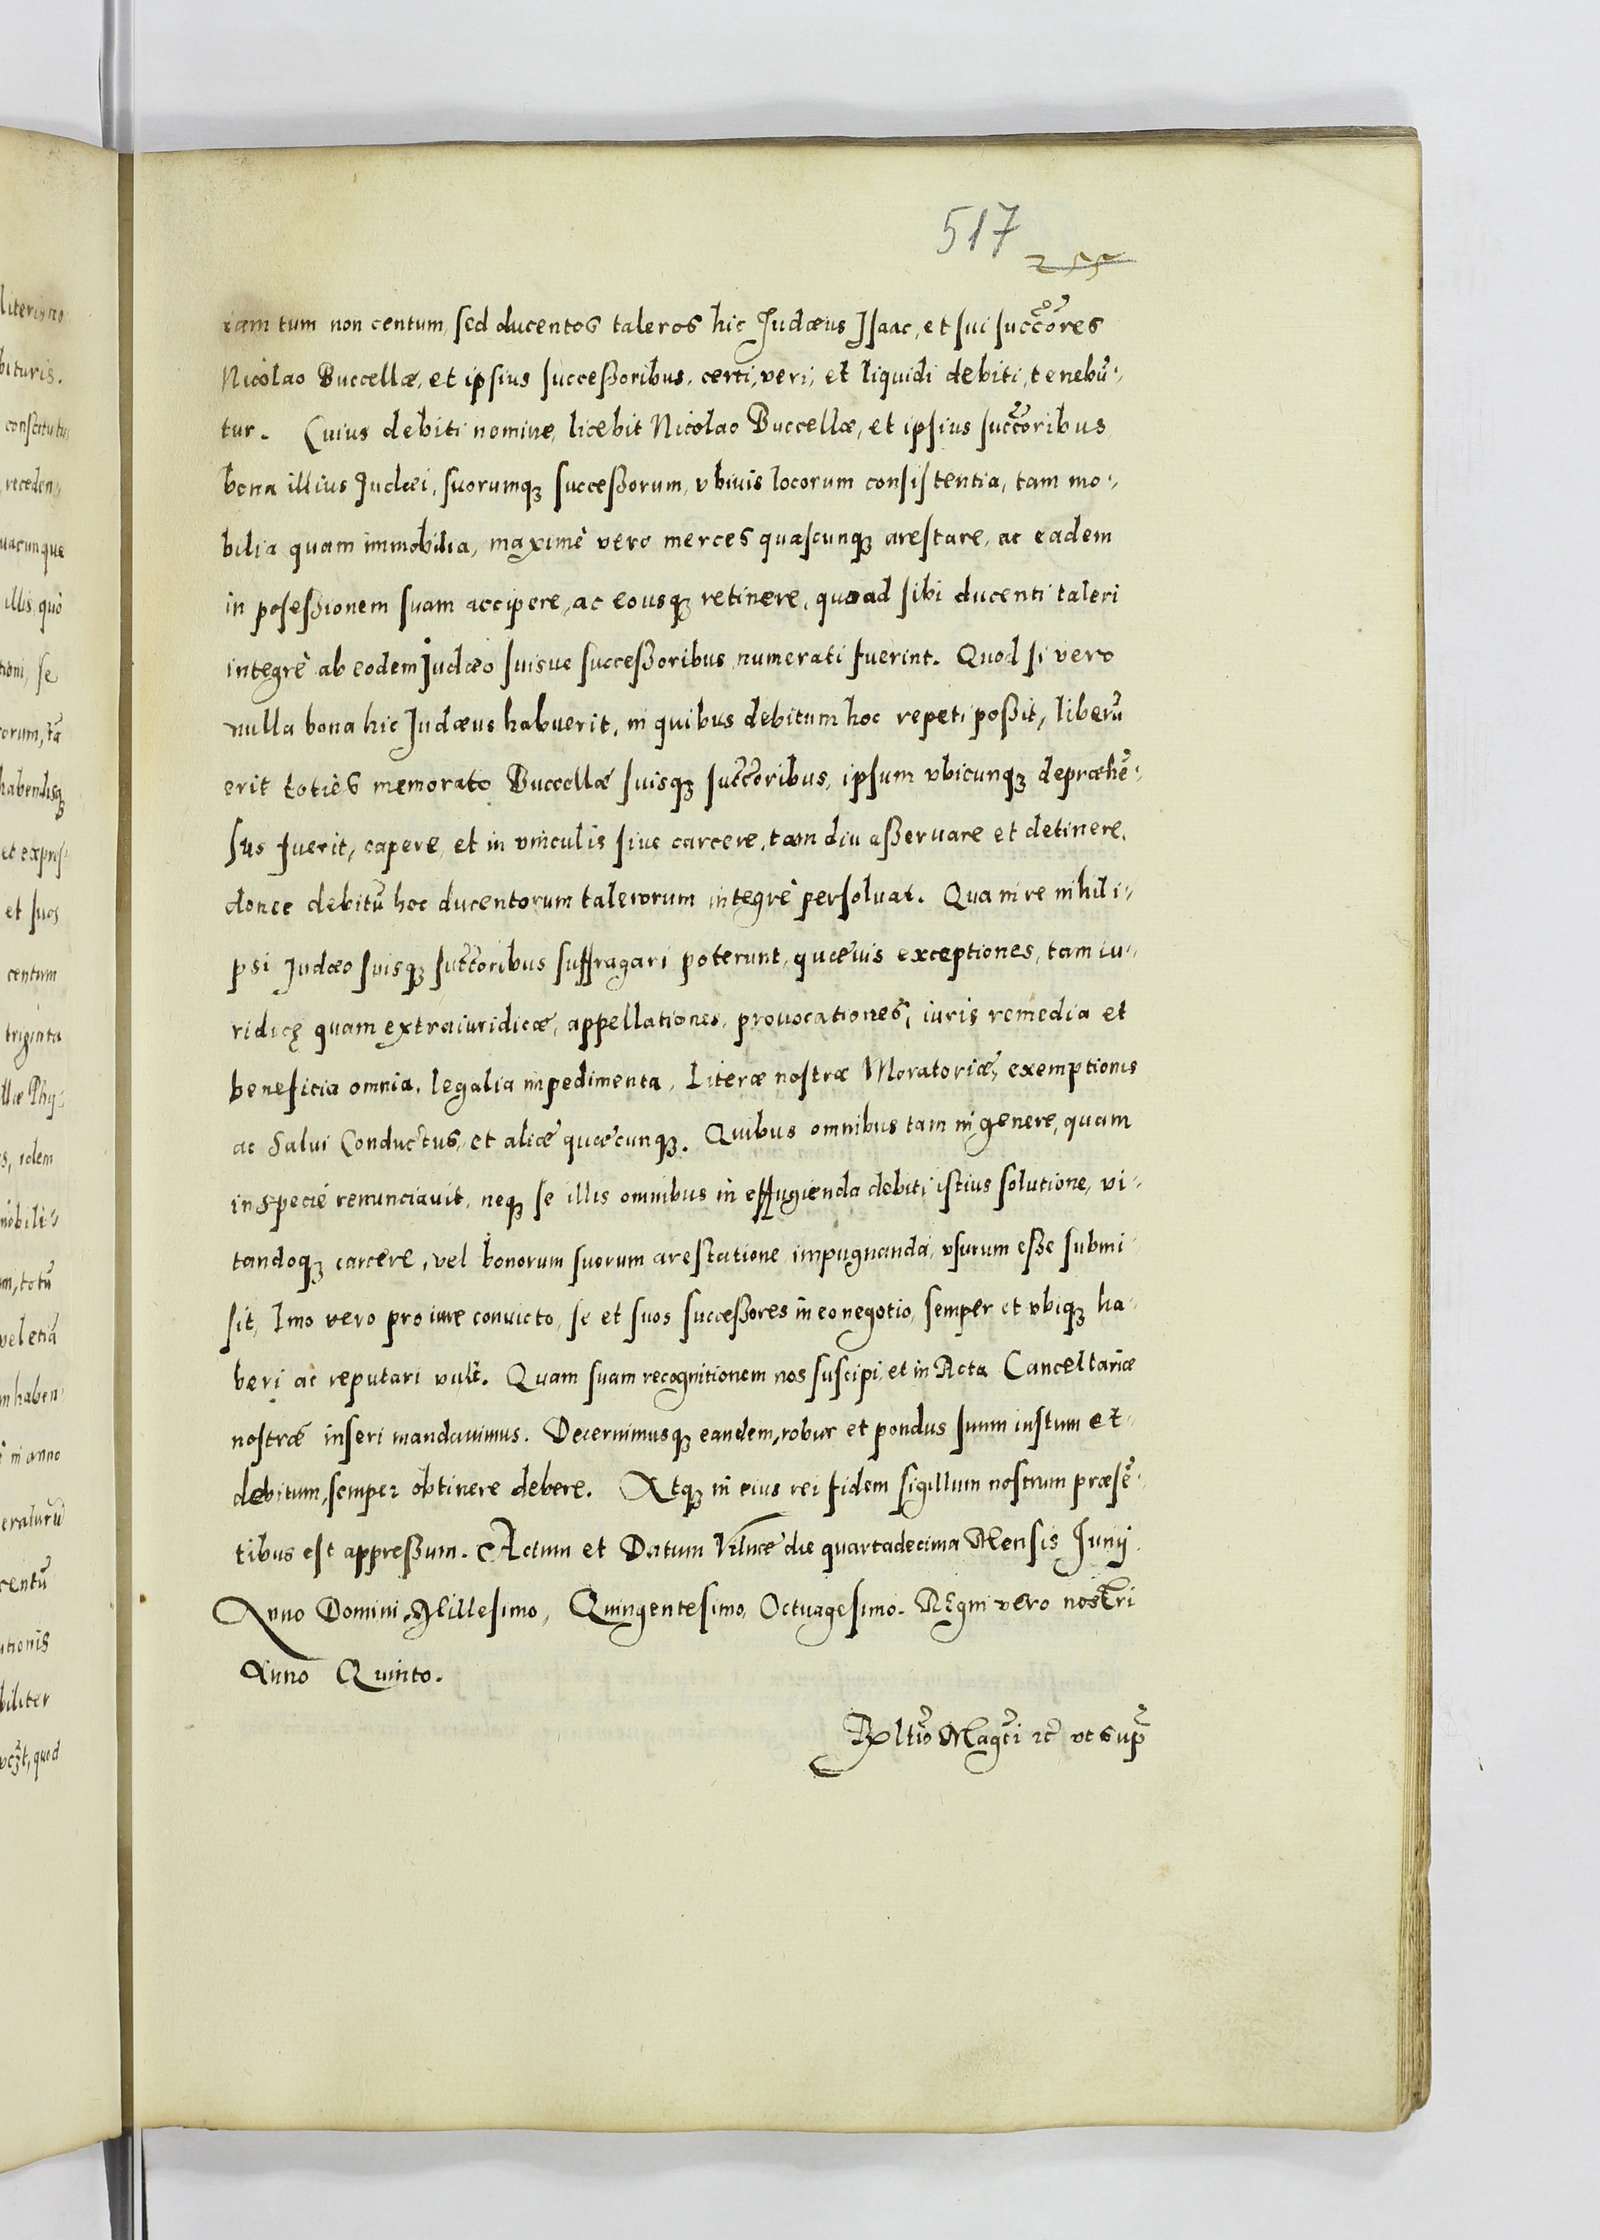 517
255
iam tum non centum, sed ducentos taleros hic Judæus Isaac, et sui succ̃ores
Nicolao Buccellæ, et ipsius successoribus, certi, veri, et liquidi debiti, tenebũ-
tur. Cuius debiti nomine, licebit Nicolao Buccellæ, et ipsius succ̃oribus
bona illius Judæi, suorumq3 successorum, vbiuis locorum consistentia, tam mo-
bilia quam immobilia, maximè vero merces quascunq3 arestare, ac eadem
in posessionem suam accipere, ac eousq3 retinere, quoad sibi ducenti taleri
integrè ab eodem Judæo suisue successoribus numerati fuerint. Quod si vero
nulla bona hic Judæus habuerit, in quibus debitum hoc repeti possit, liberũ
erit toties memorato Buccellæ suisq3 succ̃oribus, ipsum vbicunq3 depræhẽ-
sus fuerit, capere, et in vinculis siue carcere, tam diu asseruare et detinere,
donec debitũ hoc ducentorum talerorum integrè persoluat. Qua in re nihil i-
psi Judæo suisq3 succ̃oribus suffragari poterunt, quæuis exceptiones, tam iu-
ridicę quam extraiuridicæ, appellationes, prouocationes, iuris remedia et
beneficia omnia, legalia impedimenta, Literæ nostræ Moratoriæ, exemptionis
ac Salui Conductus, et aliæ quæcunq3. Quibus omnibus tam in genere, quam
in specie renunciauit, neq3 se illis omnibus in effugienda debiti istius solutione, vi-
tandoq3 carcere, vel bonorum suorum arestatione impugnanda, vsurum esse submi
sit, Imo vero pro iure conuicto, se et suos successores in eo negotio, semper et vbiq3 ha-
beri ac reputari vult. Quam suam recognitionem nos suscipi, et in Acta Cancellariæ
nostræ inseri mandauimus. Decernimusq3 eandem, robur et pondus suum iustum et
debitum, semper obtinere debere. Atq3 in eius rei fidem sigillum nostrum præsẽ-
tibus est appressum. Actum et Datum Vilnæ die quartadecima Mensis Junij.
Anno Domini Millesimo, Quingentesimo, Octuagesimo. REgni vero nostri
Anno Quinto.
Rltio Magci rc̃ vt sup̃